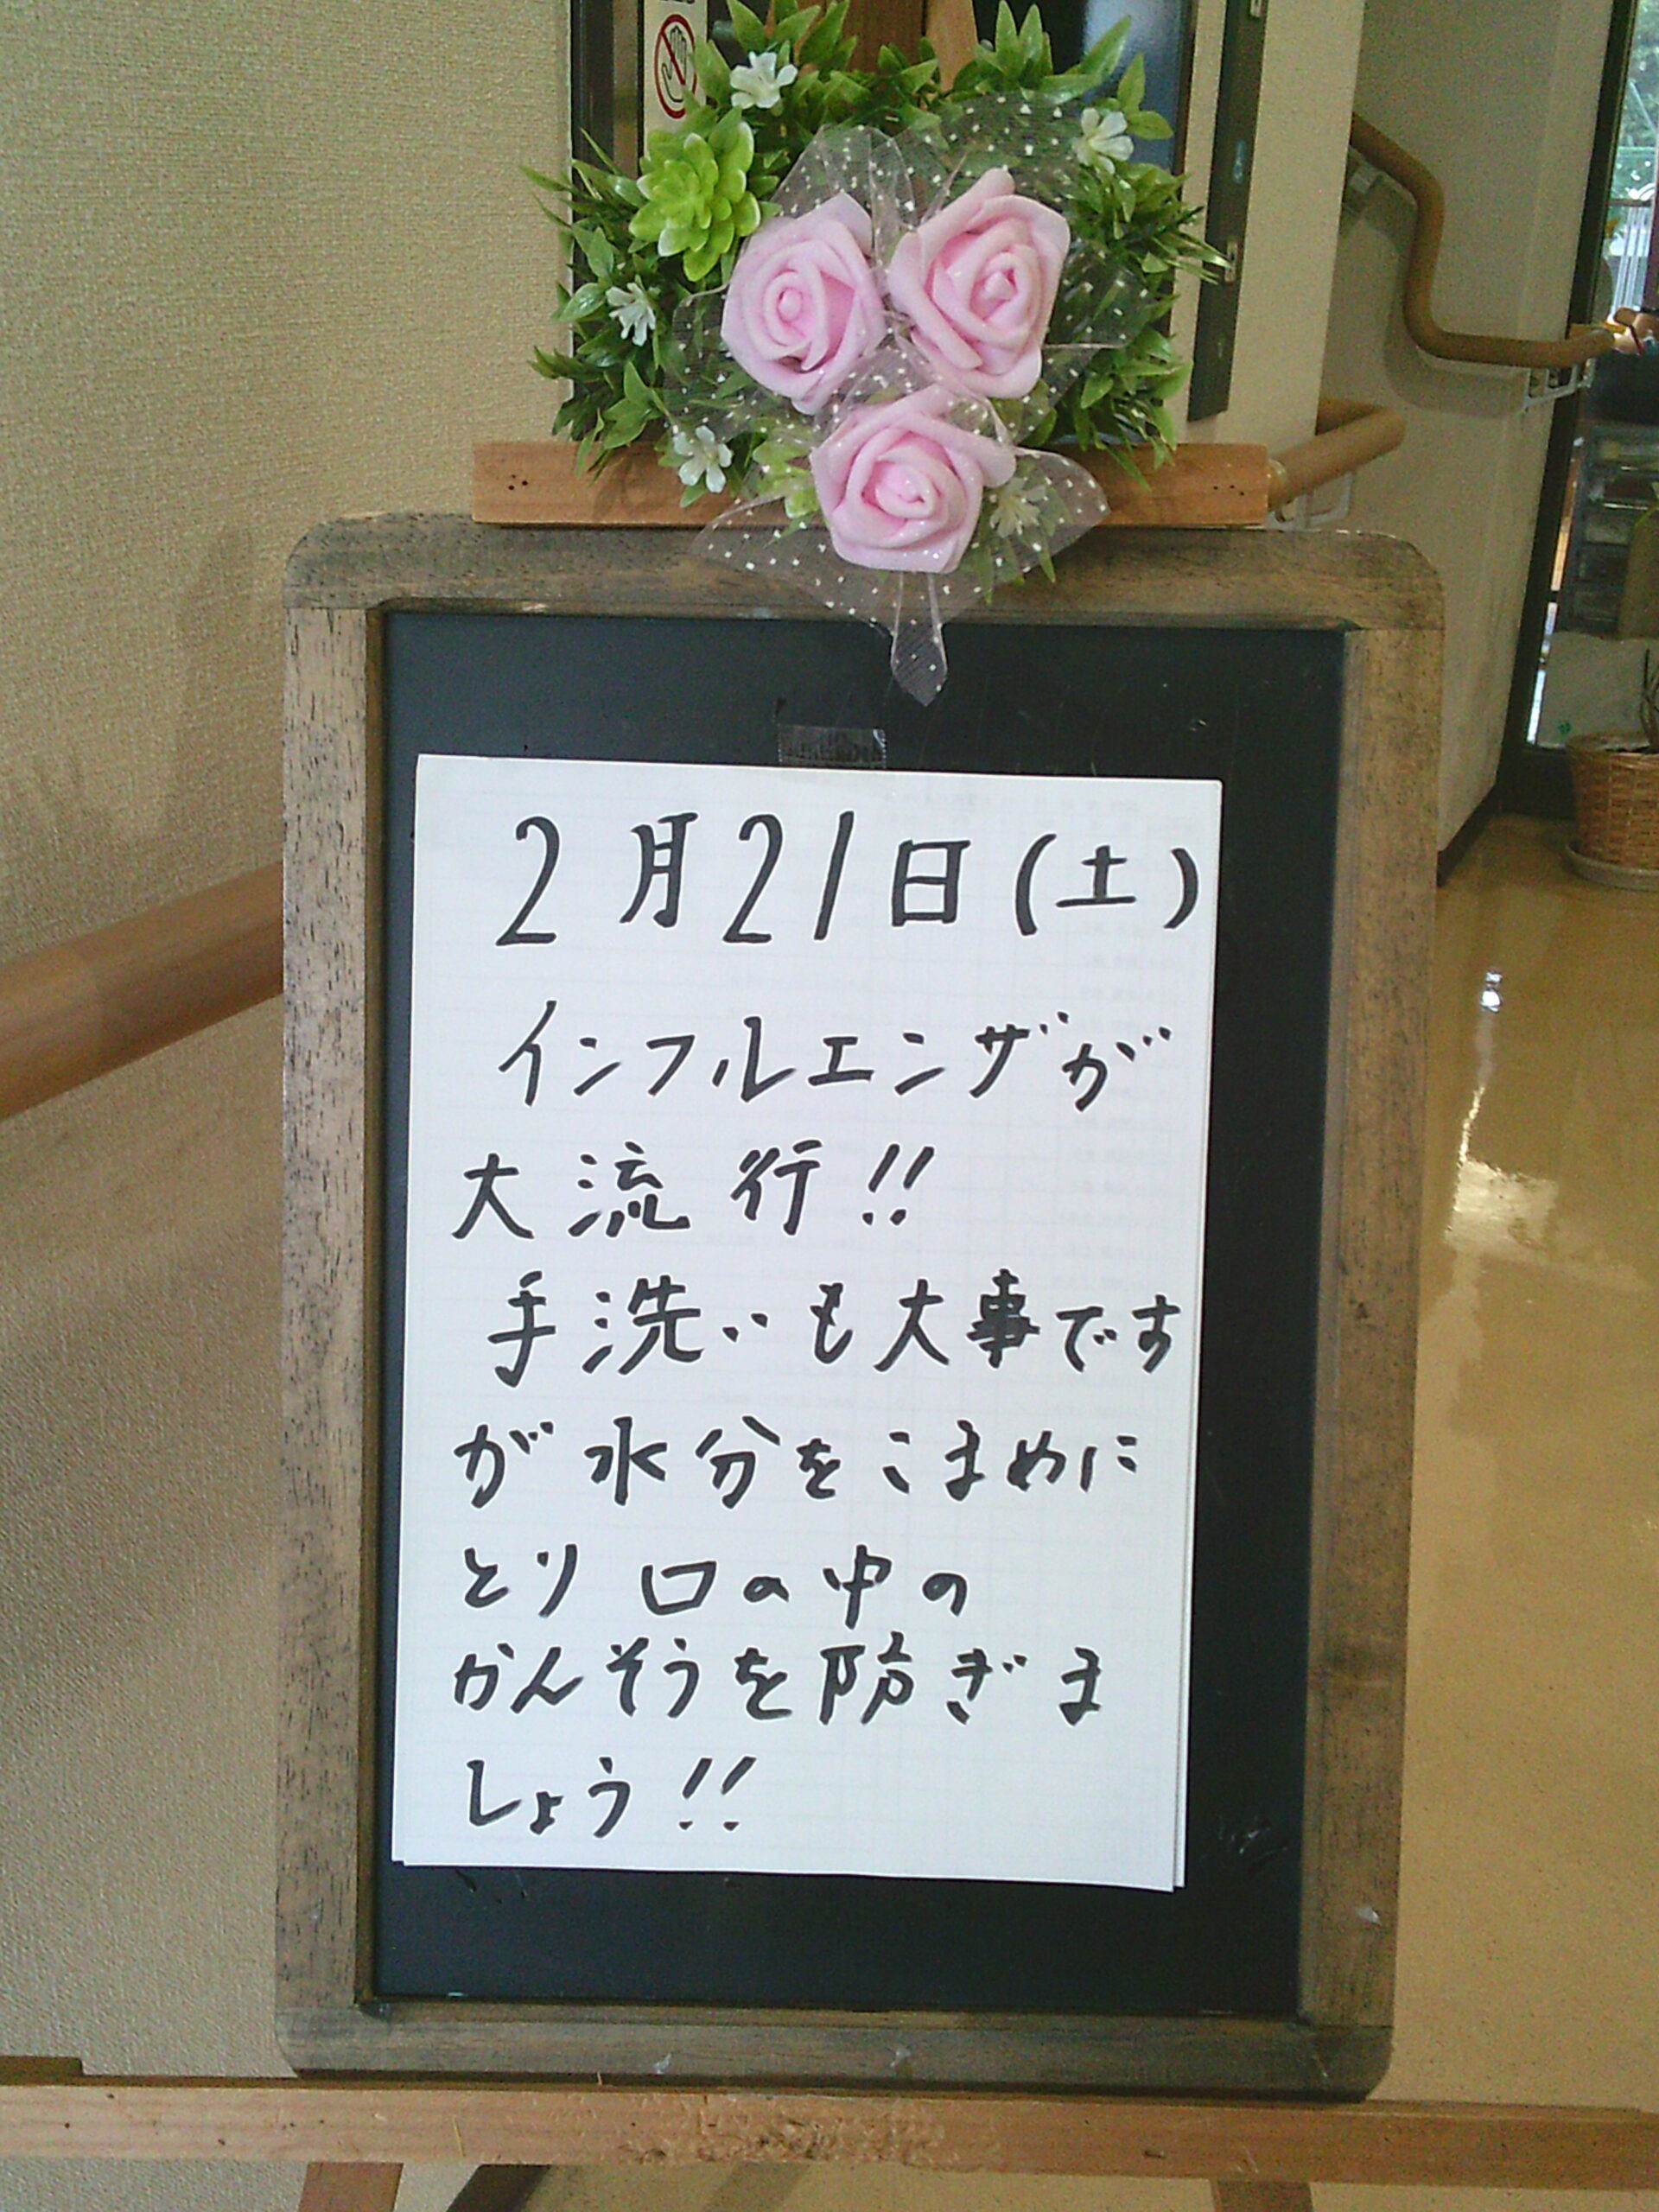 2月21日(土)
インフルエンザが
大流行!!
手洗いも大事です
が水分をこまめに
とり口の中の
かんそうを防ぎま
しょう!!